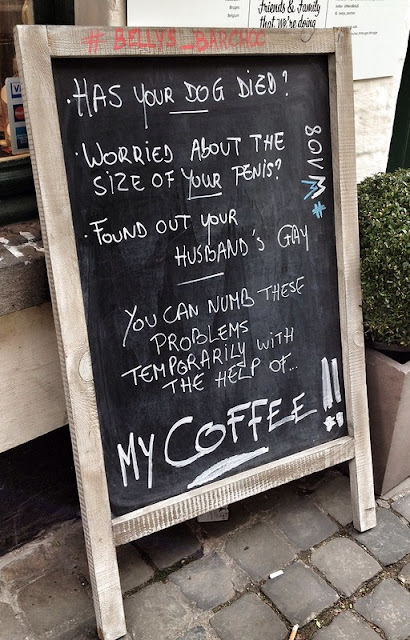 Bruges
Belgium
Friends & Family
that we're doing
# BELLYS_BARCHOC
· HAS YOUR DOG DIED?
· WORRIED ABOUT THE
SIZE OF YOUR PENIS?
· FOUND OUT YOUR
HUSBAND'S GAY
YOU CAN NUMB THESE
PROBLEMS
TEMPORARILY WITH
THE HELP OF...
MY COFFEE!!